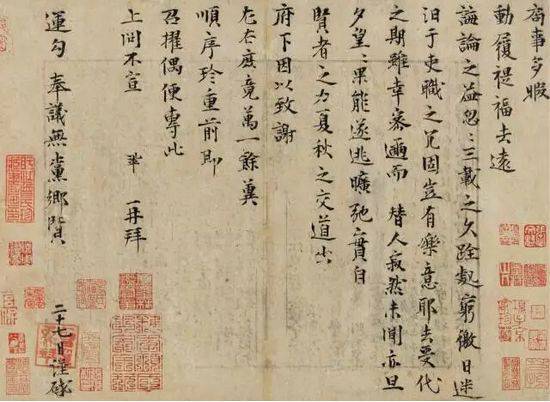 局事多暇
動履禔福去遠
誨論之益忽〻三載之久跧處窮徼日迷
汩于吏職之冗固豈有樂意耶去受代
之期雖幸密邇而替人寂然未聞亦旦
夕望〻果能遂逃曠弛實自
賢者之力夏秋之交道出
府下因以致謝
左右庶竟萬一餘冀
順序珍重前即
召擢偶便專此
上問不宣 鞏 再拜
運勾 奉議無黨鄉賢
二十七日謹啓